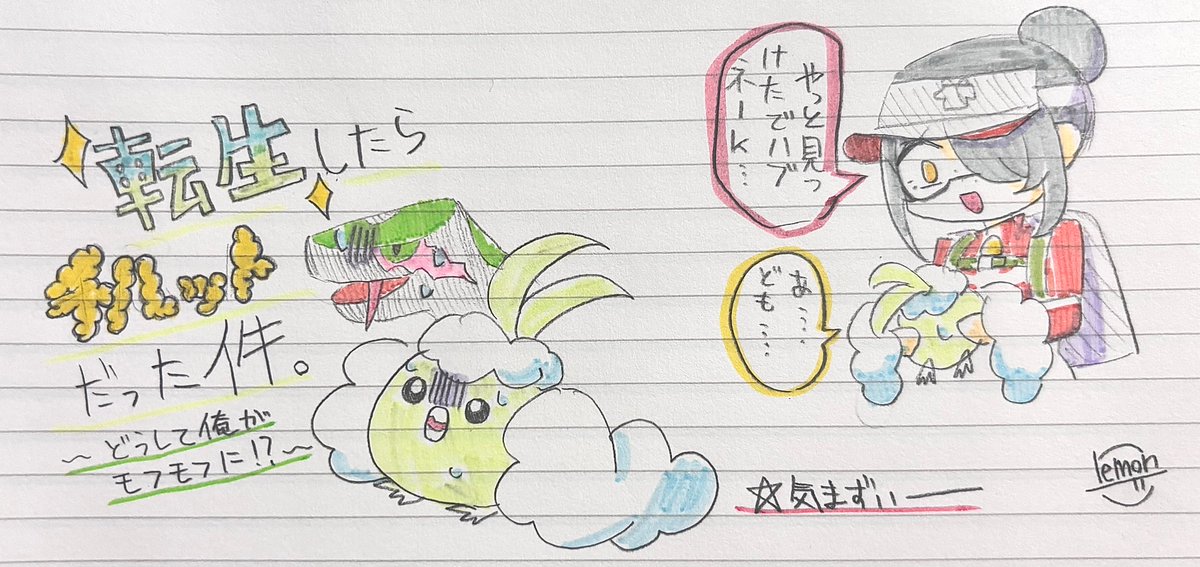 転生したら
チルット
だった件。
～どうして俺が
モフモフに!?～
やっと見っ
けたでハブ
ネーk…
あ……
ども……
☆気まずぃ──
lemon